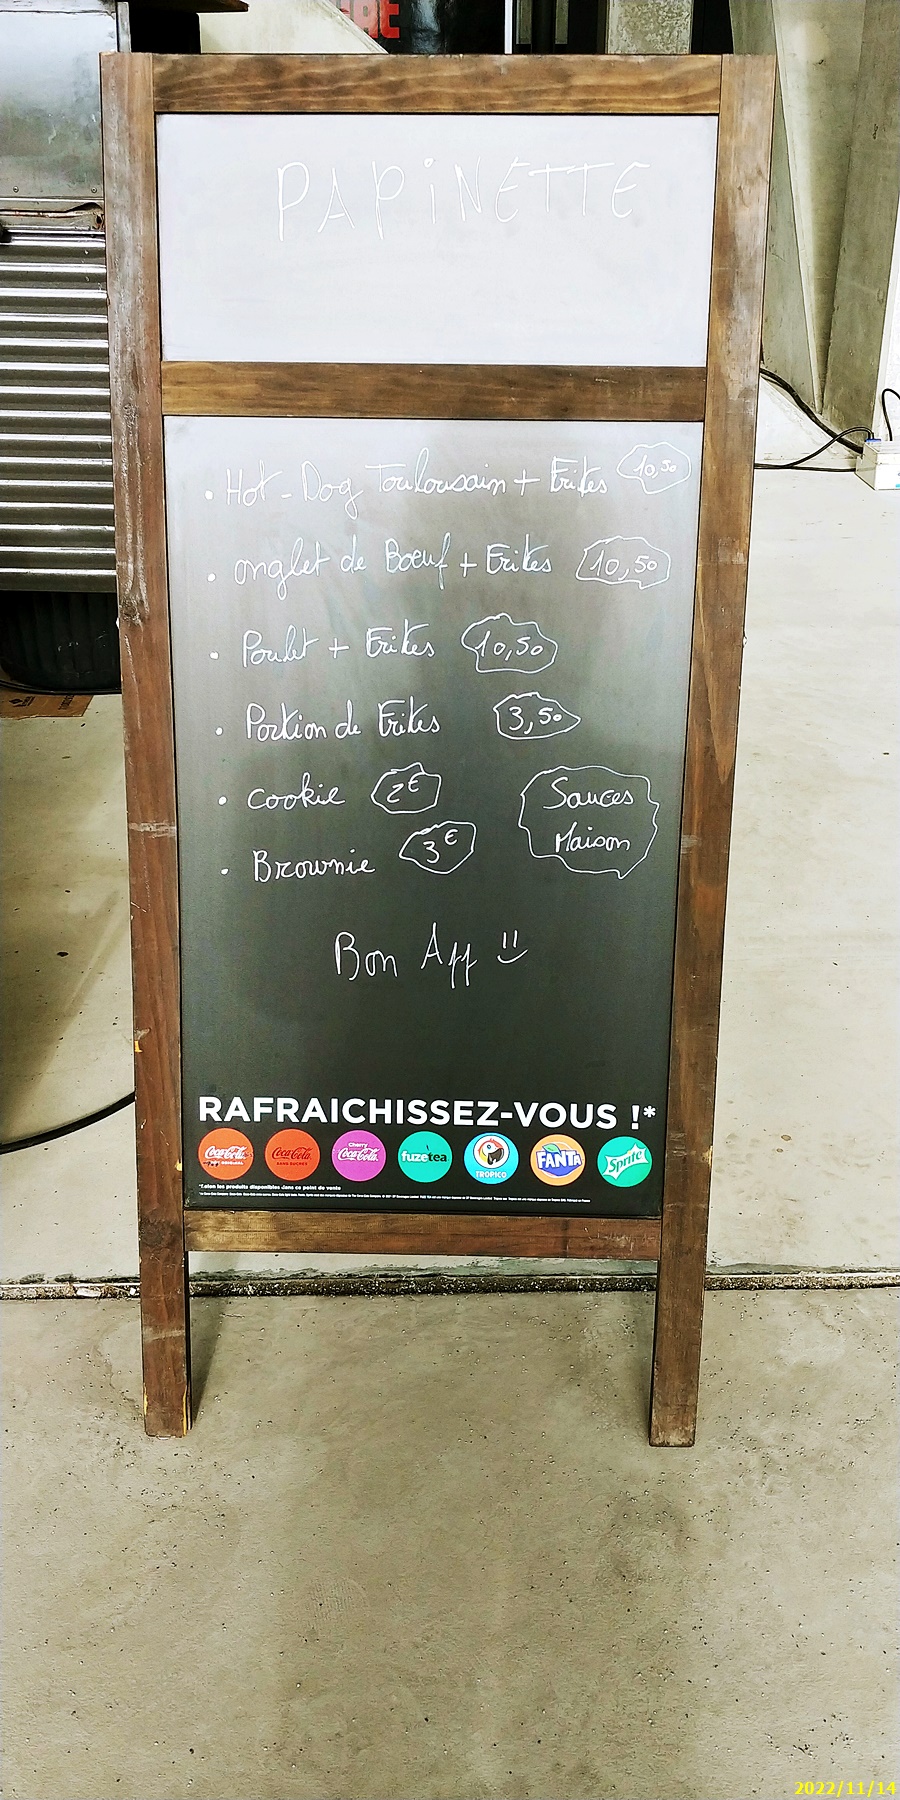 PAPiNETTE
• Hot-Dog Toulousain + Frites 10,50
• onglet de Boeuf + Frites 10,50
• Poulet + Frites 10,50
• Portion de Frites 3,50
• cookie 2€
Sauces
Maison
• Brownie 3€
Bon App
RAFRAICHISSEZ-VOUS !*
Coca-Cola Coca-Cola SANS SUCRES Cherry Coca-Cola fuzetea TROPICO FANTA Sprite
*selon les produits disponibles dans ce point de vente
2022/11/14